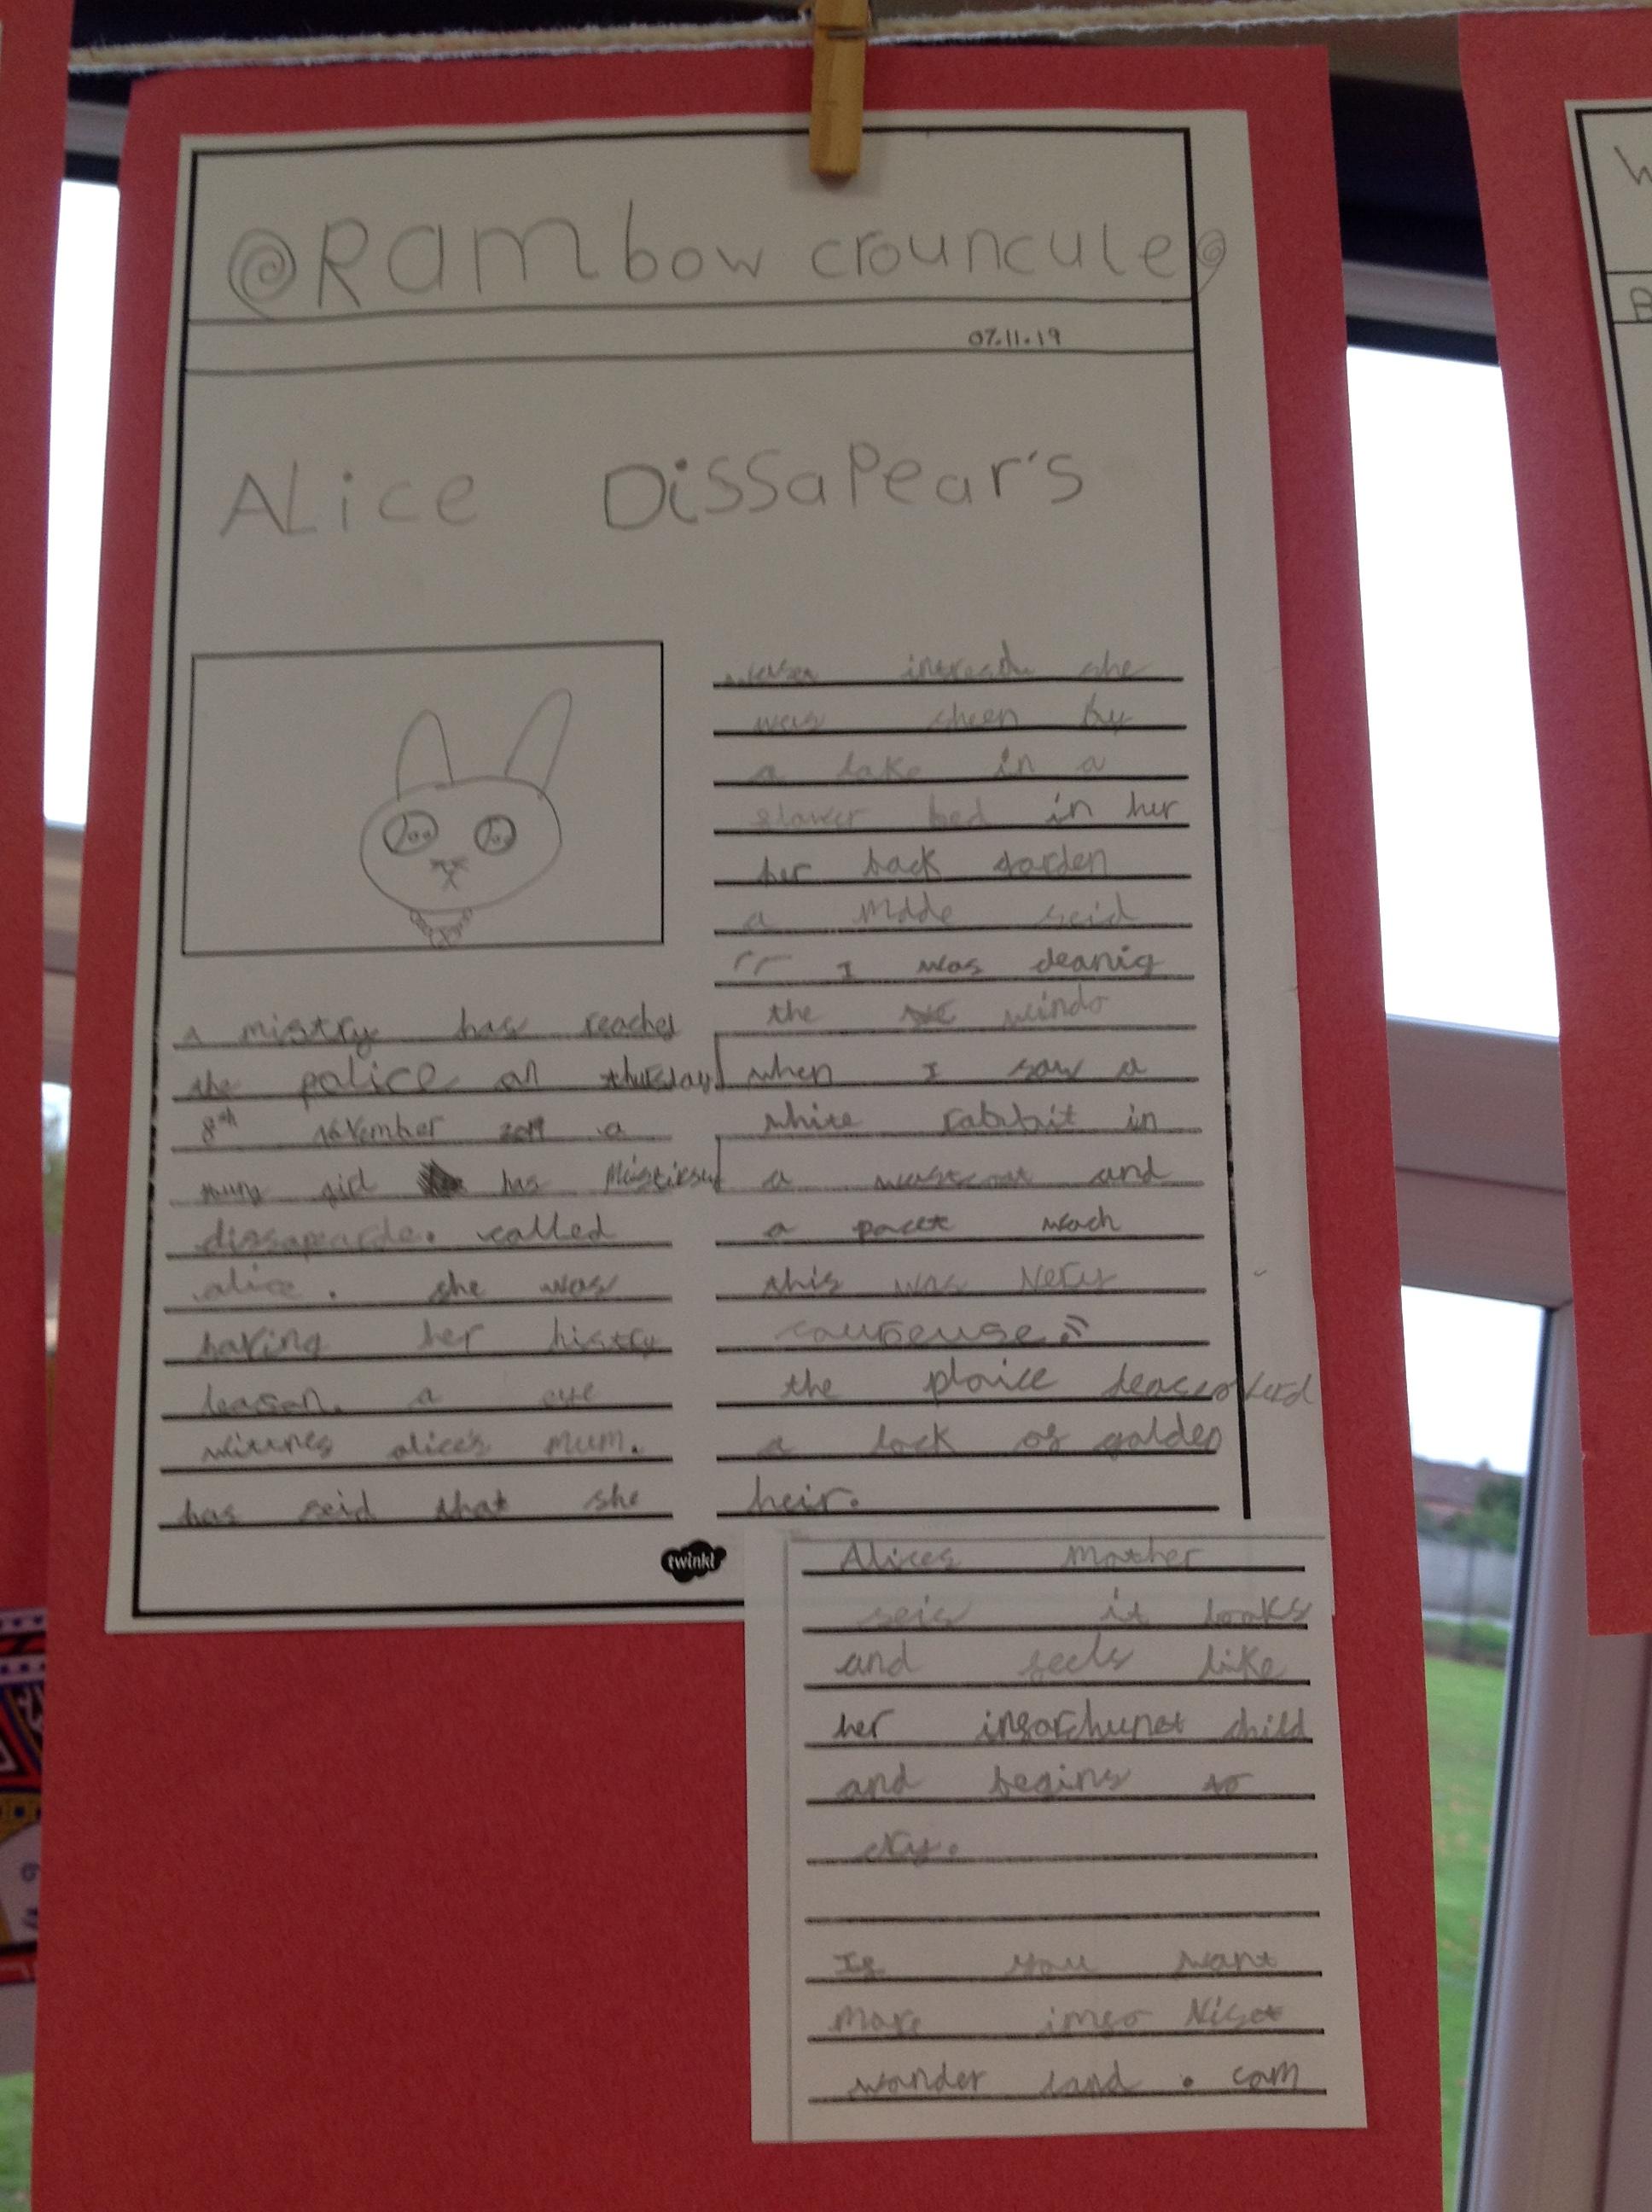 Rambow crouncule
07.11.19
ALice Dissapear's
a mistry has reached
the police on thursday
8th november 2019 a
yung girl has mistirsul
dissapearde. called
alice. she was
having her histry
leason. a eye
wittnes alice's mum.
has seid that she
she
was sheen by
a lake in a
flower bed in her
her back garden
a mdde seid
I was cleanig
the windo
when I saw a
white rabbit in
a wastcoat and
a pocet wach
this was very
the plaice
a lock of golden
heir.
Alices mother
seis it looks
and feels like
her inforchunet child
and begins to
cry.
If you want
more imfo Visot
wonder land . com
twinkl
W
B